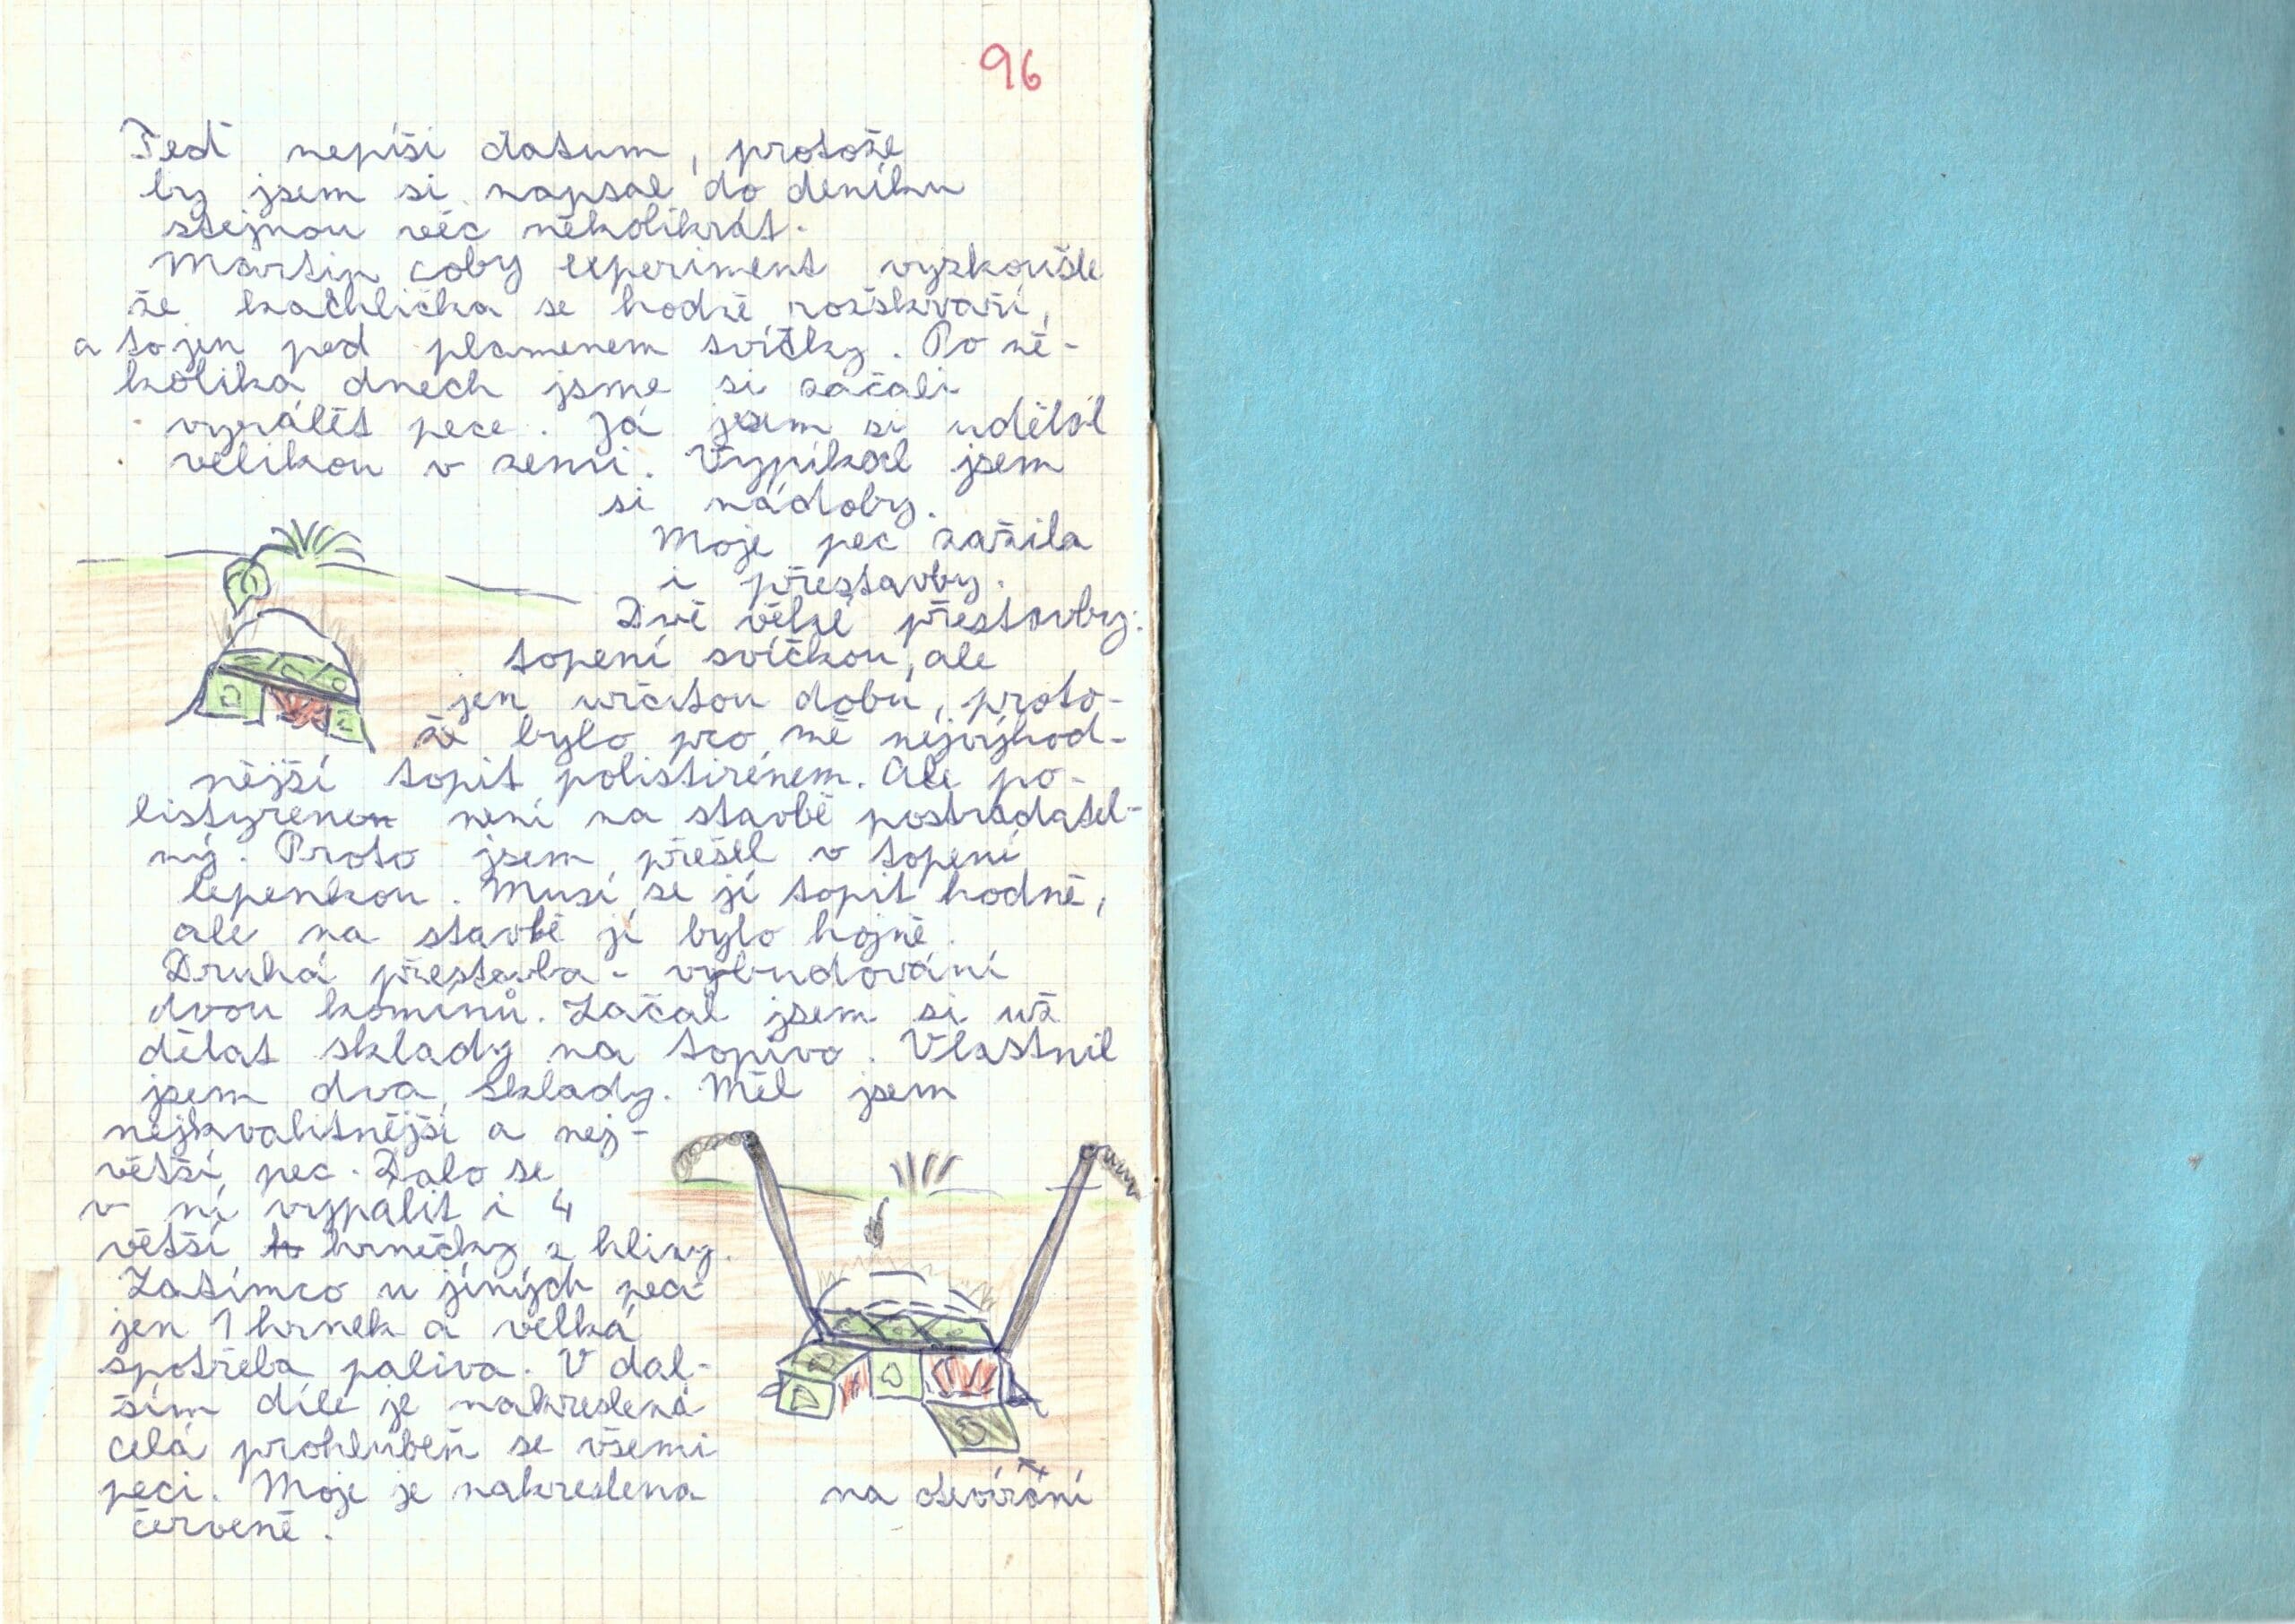 96
Teď nepíši datum, protože
by jsem si napsal do deníku
stejnou věc několikrát.
Martin coby experiment vyzkoušel
že kachlička se hodně rozškvaří,
a to jen pod plamenem svíčky. Po ně-
kolika dnech jsme si začali
vyrábět pece. Já jsem si udělal
velikou v zemi. Vypíkal jsem
si nádoby.
Moje pec zažila
i přestavby.
Dvě velké přestavby:
topení svíčkou, ale
jen určitou dobu, proto-
že bylo pro mě nejvýhod-
nější topit polistirénem. Ale po-
listyren není na stavbě postradatel-
ný. Proto jsem přešel v topení
lepenkou. Musí se jí topit hodně,
ale na stavbě jí bylo hojně.
Druhá přestavba - vybudování
dvou komínů. Začal jsem si už
dělat sklady na topivo. Vlastnil
jsem dva sklady. Měl jsem
nejkvalitnější a nej-
větší pec. Dalo se
v ní vypálit i 4
větší hrnečky z hlíny.
Zatímco u jiných pecí
jen 1 hrnek a velká
spotřeba paliva. V dal-
ším díle je nakreslená
celá prohlubeň se všemi
peci. Moje je nakreslena
červeně.
na otevírání